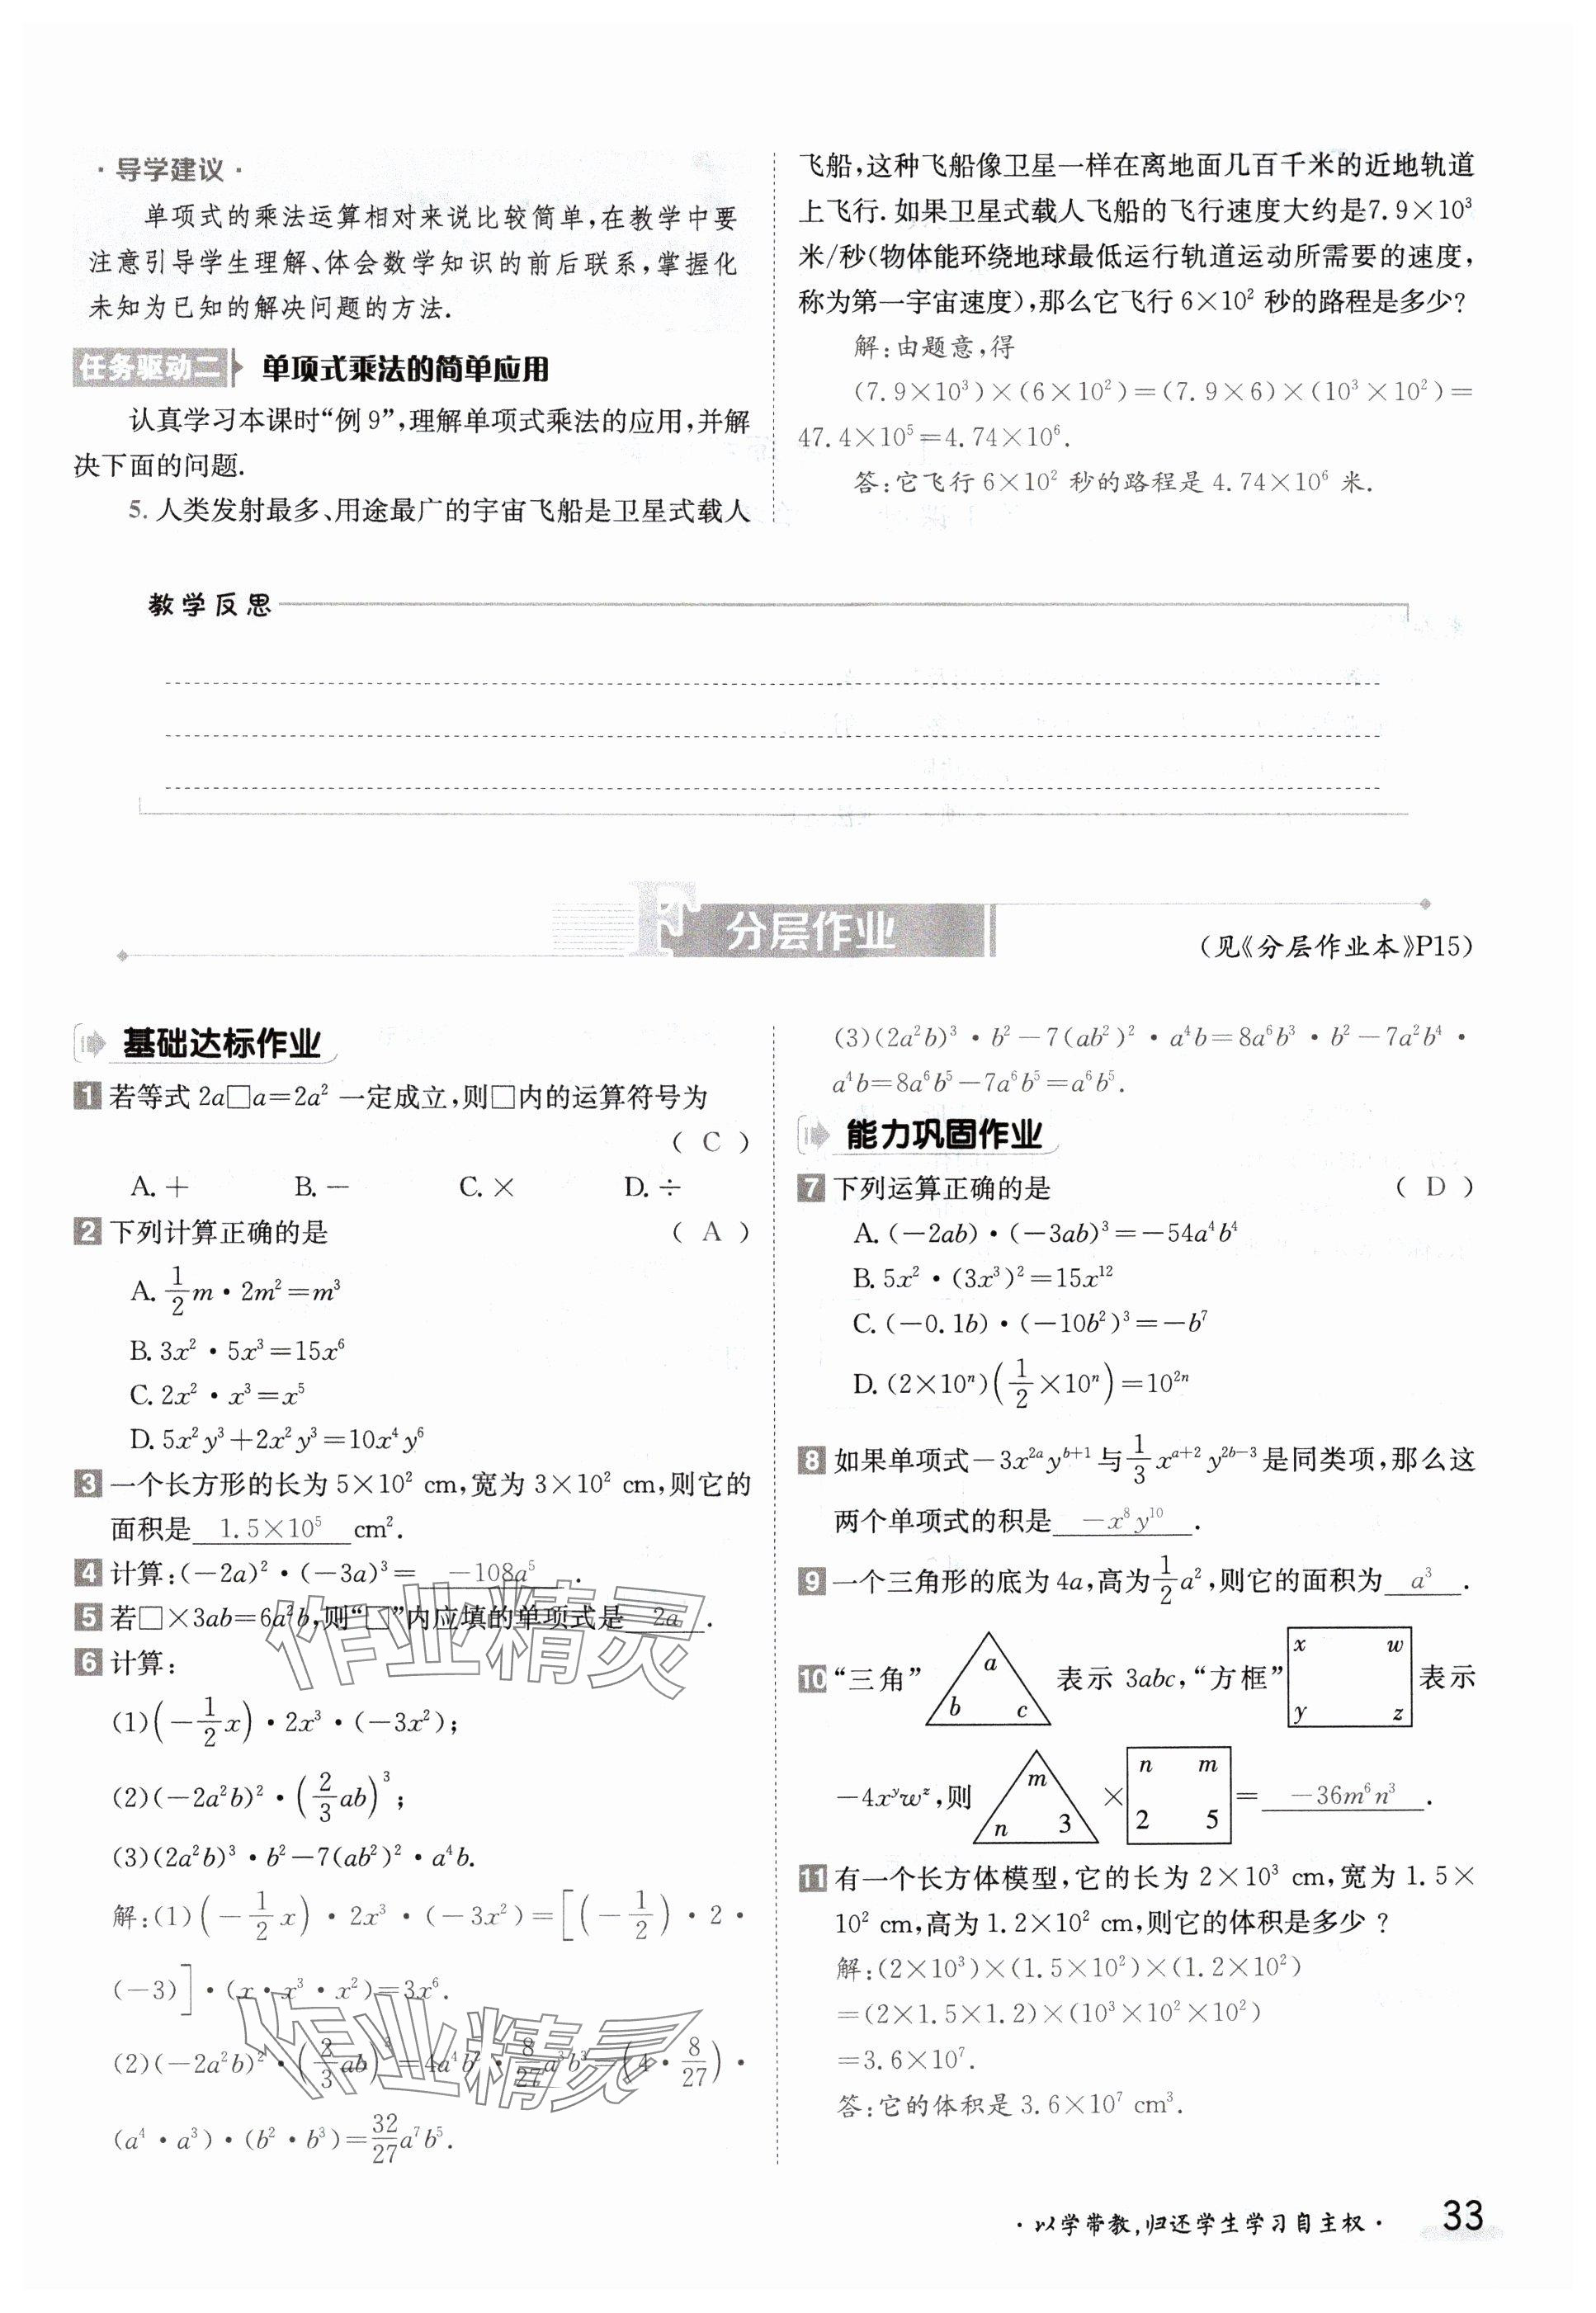 · 导学建议 ·
单项式的乘法运算相对来说比较简单,在教学中要
注意引导学生理解、体会数学知识的前后联系,掌握化
未知为已知的解决问题的方法.
任务驱动二 单项式乘法的简单应用
认真学习本课时“例 9”,理解单项式乘法的应用,并解
决下面的问题.
5. 人类发射最多、用途最广的宇宙飞船是卫星式载人
飞船,这种飞船像卫星一样在离地面几百千米的近地轨道
上飞行. 如果卫星式载人飞船的飞行速度大约是7. 9×10³
米/秒(物体能环绕地球最低运行轨道运动所需要的速度,
称为第一宇宙速度),那么它飞行 6×10² 秒的路程是多少?
解:由题意,得
(7. 9×10³)×(6×10²)=(7. 9×6)×(10³×10²)=
47. 4×10⁵=4. 74×10⁶.
答:它飞行 6×10² 秒的路程是 4. 74×10⁶ 米.
教学反思
F 分层作业
(见《分层作业本》P15)
基础达标作业
1 若等式 2a□a=2a² 一定成立,则□内的运算符号为
( C )
A. + B. − C. × D. ÷
2 下列计算正确的是 ( A )
A. 1/2 m·2m²=m³
B. 3x²·5x³=15x⁶
C. 2x²·x³=x⁵
D. 5x²y³+2x²y³=10x⁴y⁶
3 一个长方形的长为 5×10² cm,宽为 3×10² cm,则它的
面积是 1. 5×10⁵ cm².
4 计算:(−2a)²·(−3a)³= −108a⁵ .
5 若□×3ab=6a²b,则“□”内应填的单项式是 2a .
6 计算:
(1)(−1/2 x)·2x³·(−3x²);
(2)(−2a²b)²·(2/3 ab)³;
(3)(2a²b)³·b²−7(ab²)²·a⁴b.
解:(1)(−1/2 x)·2x³·(−3x²)=[(−1/2)·2·
(−3)]·(x·x³·x²)=3x⁶.
(2)(−2a²b)²·(2/3 ab)³=4a⁴b²·8/27 a³b³=(4·8/27)·
(a⁴·a³)·(b²·b³)=32/27 a⁷b⁵.
(3)(2a²b)³·b²−7(ab²)²·a⁴b=8a⁶b³·b²−7a²b⁴·
a⁴b=8a⁶b⁵−7a⁶b⁵=a⁶b⁵.
能力巩固作业
7 下列运算正确的是 ( D )
A. (−2ab)·(−3ab)³=−54a⁴b⁴
B. 5x²·(3x³)²=15x¹²
C. (−0. 1b)·(−10b²)³=−b⁷
D. (2×10ⁿ)(1/2×10ⁿ)=10²ⁿ
8 如果单项式−3x²ᵃyᵇ⁺¹与1/3 xᵃ⁺²y²ᵇ⁻³是同类项,那么这
两个单项式的积是 −x⁸y¹⁰ .
9 一个三角形的底为 4a,高为1/2 a²,则它的面积为 a³ .
10 “三角” a b c 表示 3abc,“方框” x w y z 表示
−4xʸwᶻ,则 m n 3 × n m 2 5 = −36m⁶n³ .
11 有一个长方体模型,它的长为 2×10³ cm,宽为 1. 5×
10² cm,高为 1. 2×10² cm,则它的体积是多少 ?
解:(2×10³)×(1. 5×10²)×(1. 2×10²)
=(2×1. 5×1. 2)×(10³×10²×10²)
=3. 6×10⁷.
答:它的体积是 3. 6×10⁷ cm³.
作业精灵
作业精灵
· 以学带教,归还学生学习自主权 ·
33